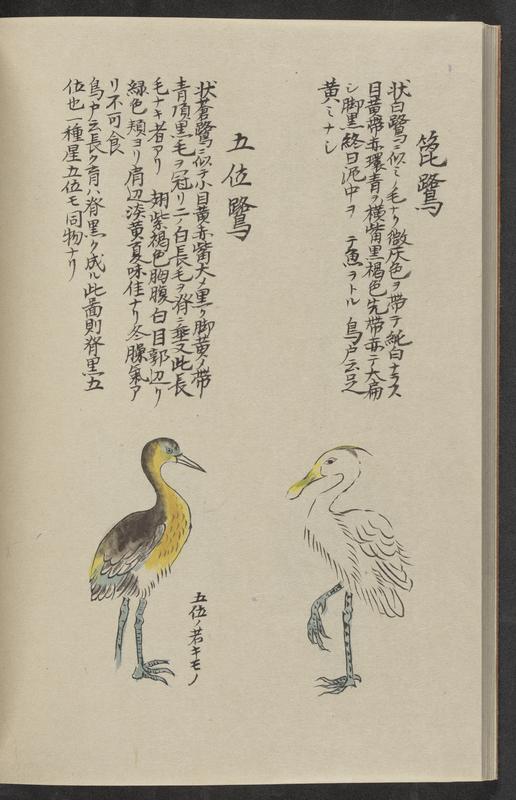 箆鷺
状白鷺ニ似ミノ毛ナク微灰色ヲ帯テ純白ナラス
目黄帯赤環青ヲ横觜黒褐色先帯赤テ大扁
シ脚黒終日泥中ヲ テ魚ヲトル 鳥戸云足
黄ミナシ
五位鷺
状蒼鷺ニ似テ小目黄赤觜大メ黒ク脚黄ノ帯
青頂黒毛ヲ冠リ二ノ白長毛ヲ脊ニ垂又此長
毛ナキ者アリ 翅紫褐色胸腹白目郭辺リ
緑色頬ヨリ肩辺淡黄夏味佳ナリ冬臊氣ア
リ不可食
鳥戸云長ク育ハ脊黒ク成ル此圖則脊黒五
位也一種星五位モ同物ナリ
五位ノ若キモノ